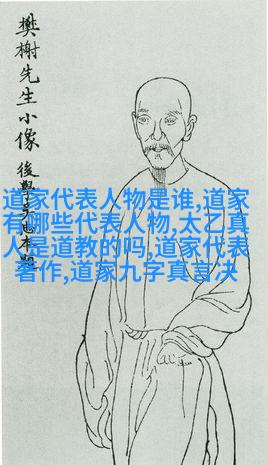 樊榭先生小像
後學
道家代表人物是谁,道家
有哪些代表人物,太乙真
人是道教的吗,道家代表
著作,道家九字真言决